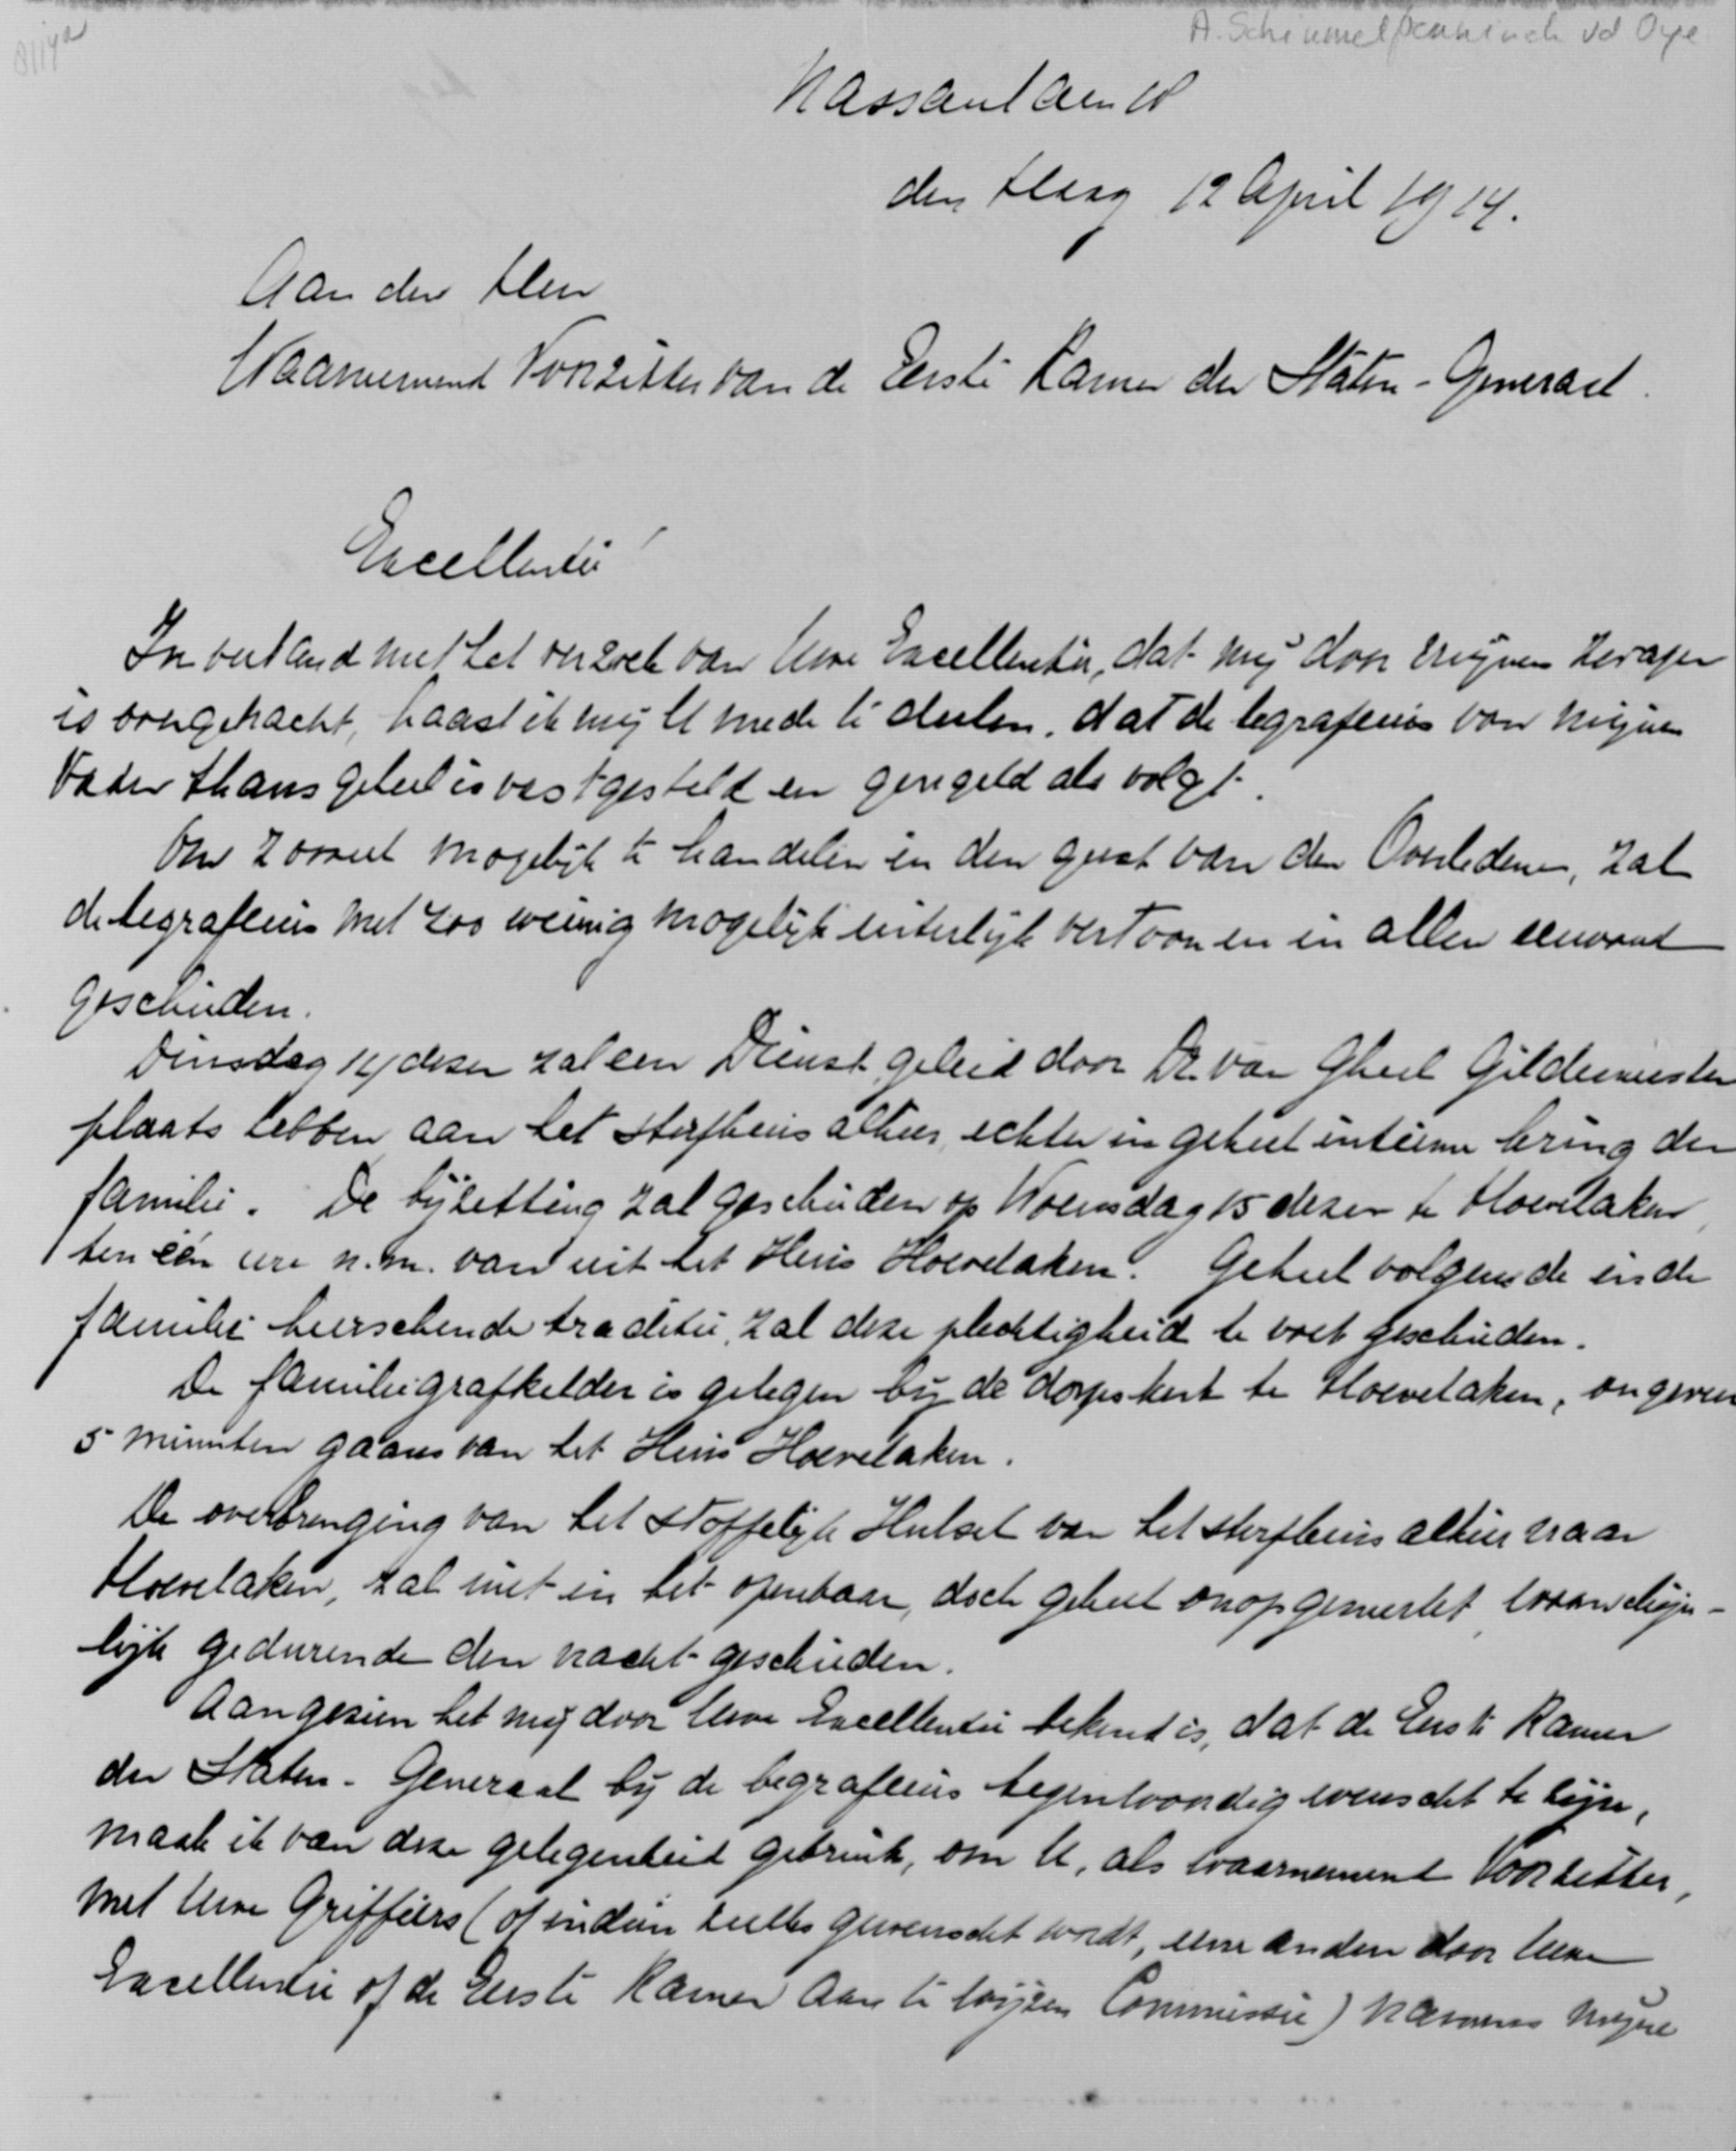 A. Schimmelpenninck vd Oye
Nassaulaan
den Haag 12 April 1914.
Aan den Heer
Waarnemend Voorzitter van de Eerste Kamer der Staten-Generaal.
Excellentie!
In verband met het verzoek van Uwe Excellentie, dat mij door mijnen zwager
is overgebracht, haast ik mij U mede te deelen, dat de begrafenis van mijnen
Vader thans geheel is vastgesteld en geregeld als volgt.
Om zooveel mogelijk te handelen in den geest van den Overledene, zal
de begrafenis met zoo weinig mogelijk uiterlijk vertoon en in allen eenvoud
geschieden.
Dinsdag 14 dezer zal een Dienst, geleid door Dr. van Gheel Gildemeester
plaats hebben aan het sterfhuis alhier, echter in geheel intieme kring der
familie. De bijzetting zal geschieden op Woensdag 15 dezer te Hoevelaken,
ten één ure n.m. van uit het Huis Hoevelaken. Geheel volgens de in de
familie heerschende traditie, zal deze plechtigheid te voet geschieden.
De familiegrafkelder is gelegen bij de dorpskerk te Hoevelaken, ongeveer
5 minuten gaans van het Huis Hoevelaken.
De overbrenging van het stoffelijk Hulsel van het sterfhuis alhier naar
Hoevelaken, zal niet in het openbaar, doch geheel onopgemerkt, waarschijn-
lijk gedurende den nacht geschieden.
Aangezien het mij door Uwe Excellentie bekend is, dat de Eerste Kamer
der Staten-Generaal bij de begrafenis tegenwoordig wenscht te zijn,
maak ik van deze gelegenheid gebruik, om U, als waarnemend Voorzitter,
met Uwe Griffiers (of indien zulks gewenscht wordt, eene andere door Uwe
Excellentie of de Eerste Kamer aan te wijzen Commissie) namens mijne